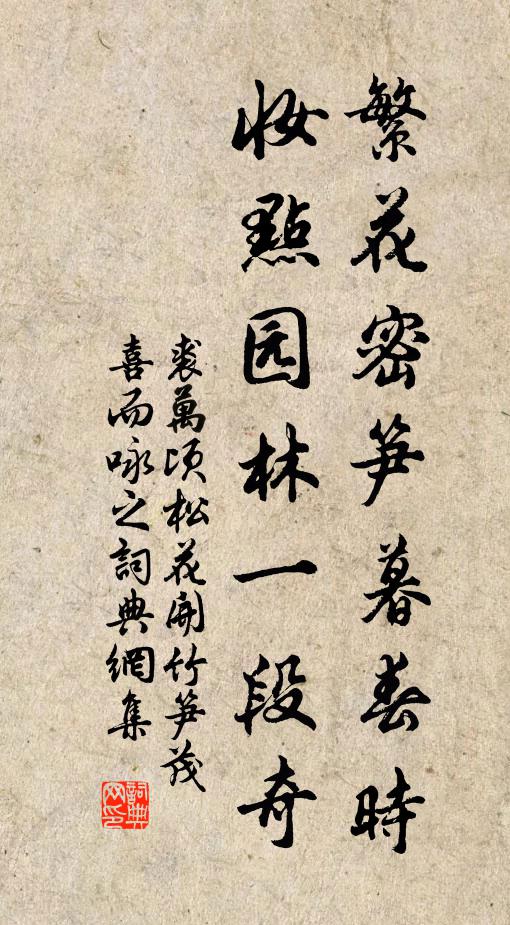 繁花密笋暮春時
妝點园林一段奇
裘萬頃松花開竹笋茂
喜而咏之詞典網集
詞典网印